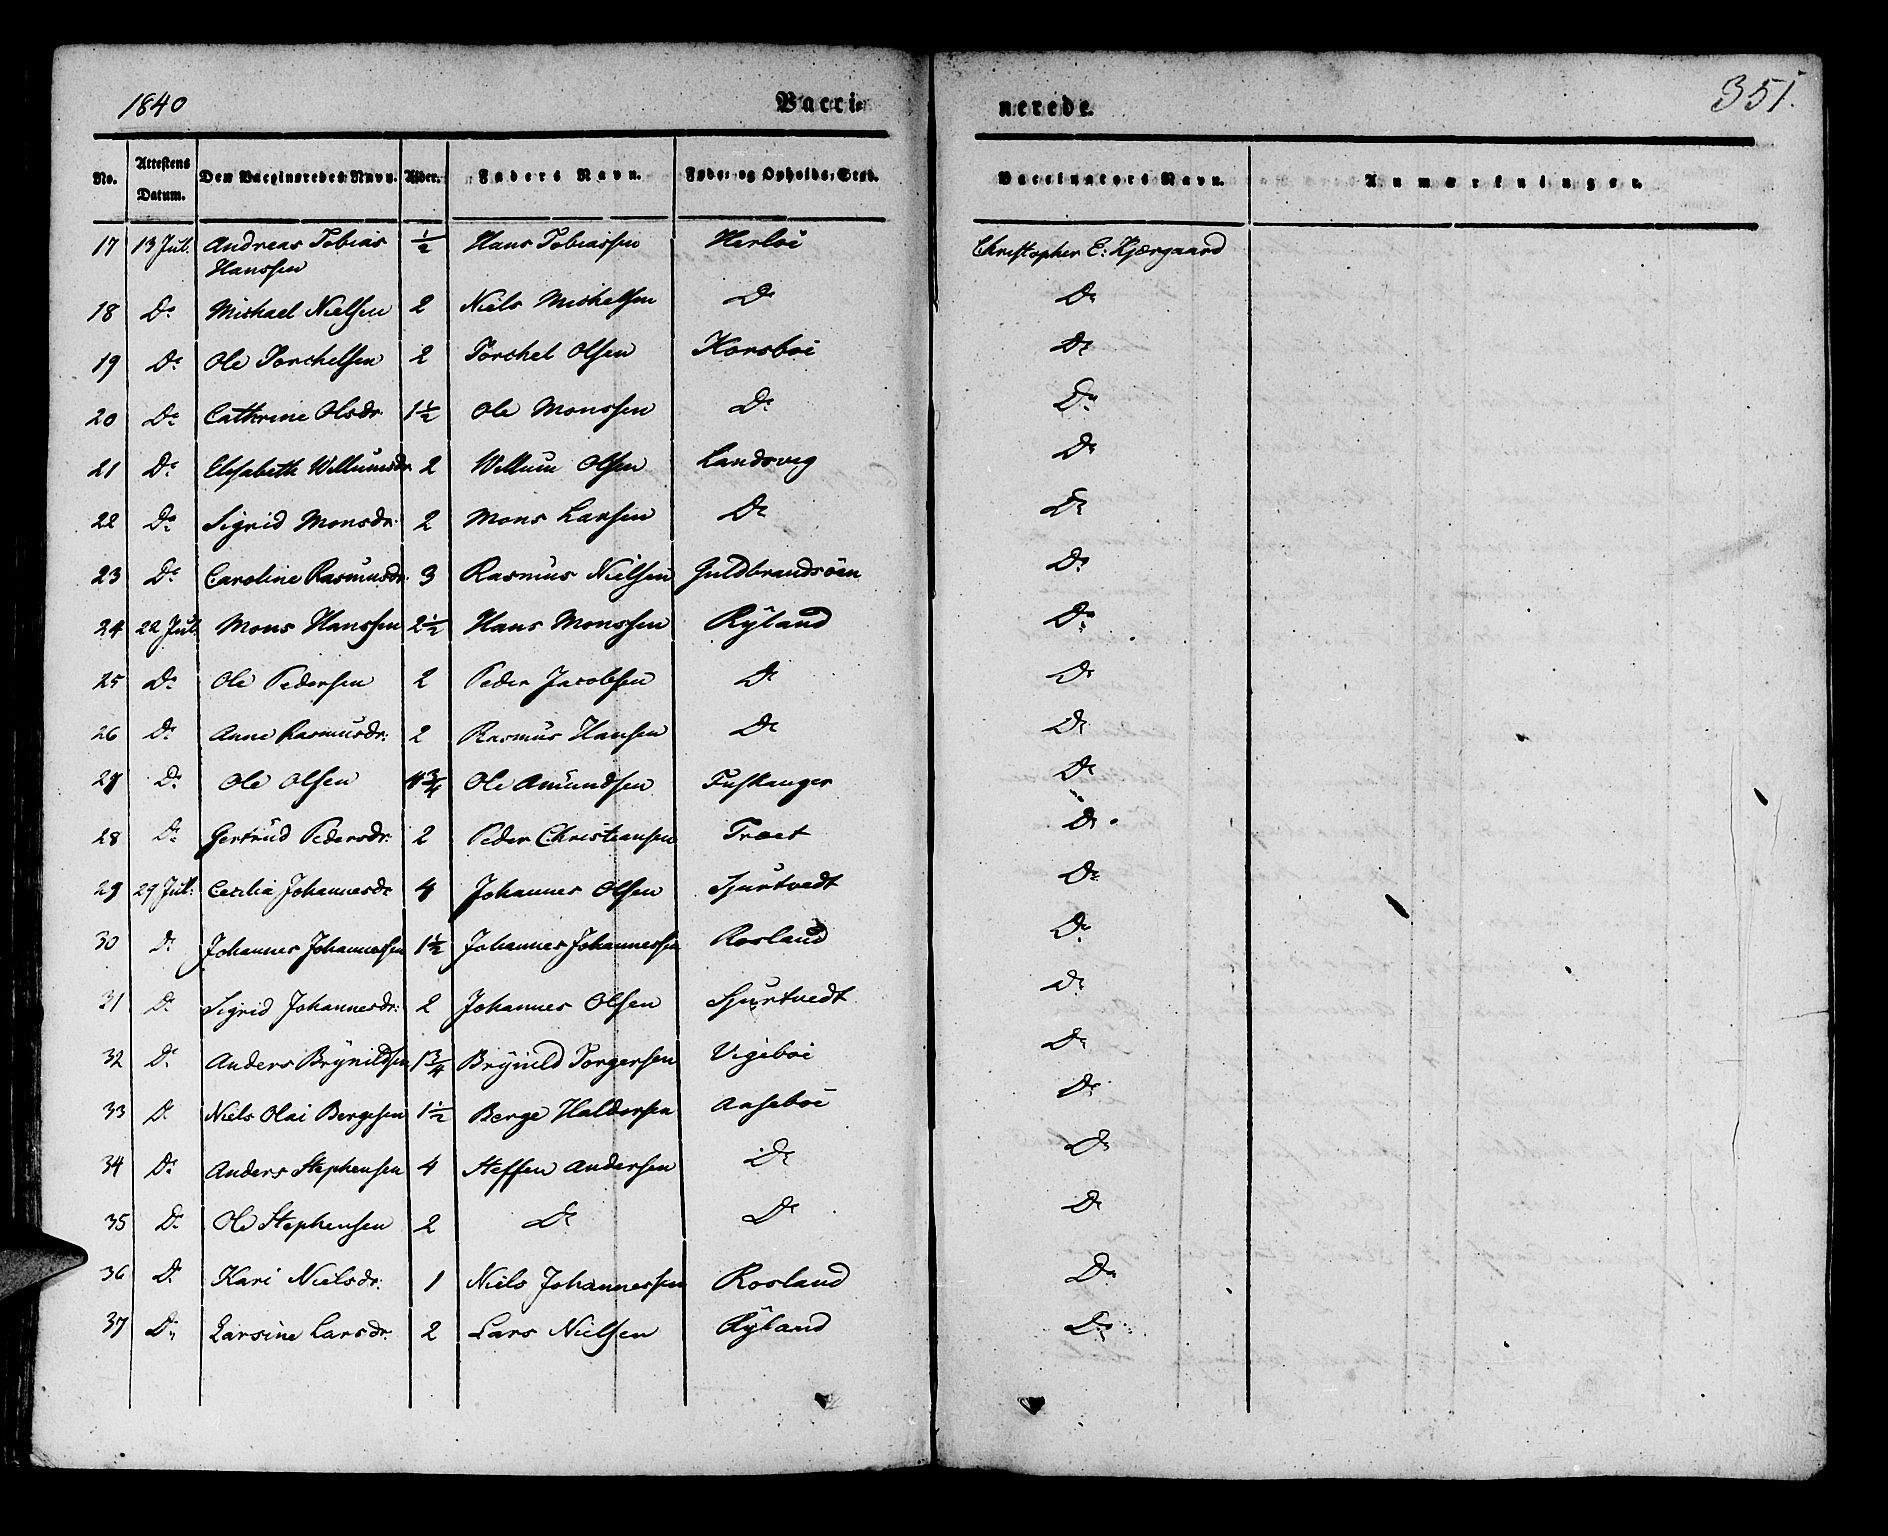 1840 Vacci= nerede. 351.
No. Attestens Datum. Den Vaccineredes Navn. Alder. Faders Navn. Føde= og Opholds=Sted. Vaccinators Navn. Anmærkninger.
17 13 Jul. Andreas Tobias ½ Hans Tobiassen Herløi Christopher E: Kjærgaard
Hanssen
18 Do Michael Nielsen 2 Niels Michelsen Do Do
19 Do Ole Torchelsen 2 Torchel Olsen Horsböi Do
20 Do Cathrine Olsdr. 1½ Ole Monssen Do Do
21 Do Elisabeth Wellumsdr. 2 Wellum Olsen Landsvig Do
22 Do Sigrid Monsdr. 2 Mons Larsen Do Do
23 Do Caroline Rasmusdr. 3 Rasmus Nielsen Guldbrandsöen Do
24 22 Jul. Mons Hanssen 2½ Hans Monssen Rÿland Do
25 Do Ole Pedersen 2 Peder Jacobsen Do Do
26 Do Anne Rasmusdr. 2 Rasmus Hansen Do Do
27 Do Ole Olsen ¾ Ole Amundsen Fuskanger Do
28 Do Gertrud Pedersdr. 2 Peder Christiansen Træt Do
29 29 Jul: Cecilia Johannesdr. 4 Johannes Olsen Sjurtvedt Do
30 Do Johannes Johannessen 1½ Johannes Johannessen Rosland Do
31 Do Sigrid Johannesdr: 2 Johannes Olsen Sjurtvedt Do
32 Do Anders Brÿnildsen 1¾ Brÿnild Torgersen Vigeböi Do
33 Do Niels Olai Bergesen 1½ Berge Haldorsen Anseböi Do
34 Do Anders Stephensen 4 Steffen Andersen Do Do
35 Do Ole Stephensen 2 Do Do Do
36 Do Kari Nielsdr. 1 Niels Johannessen Rosland Do
37 Do Larsine Larsdr. 2 Lars Nielsen Rÿland Do